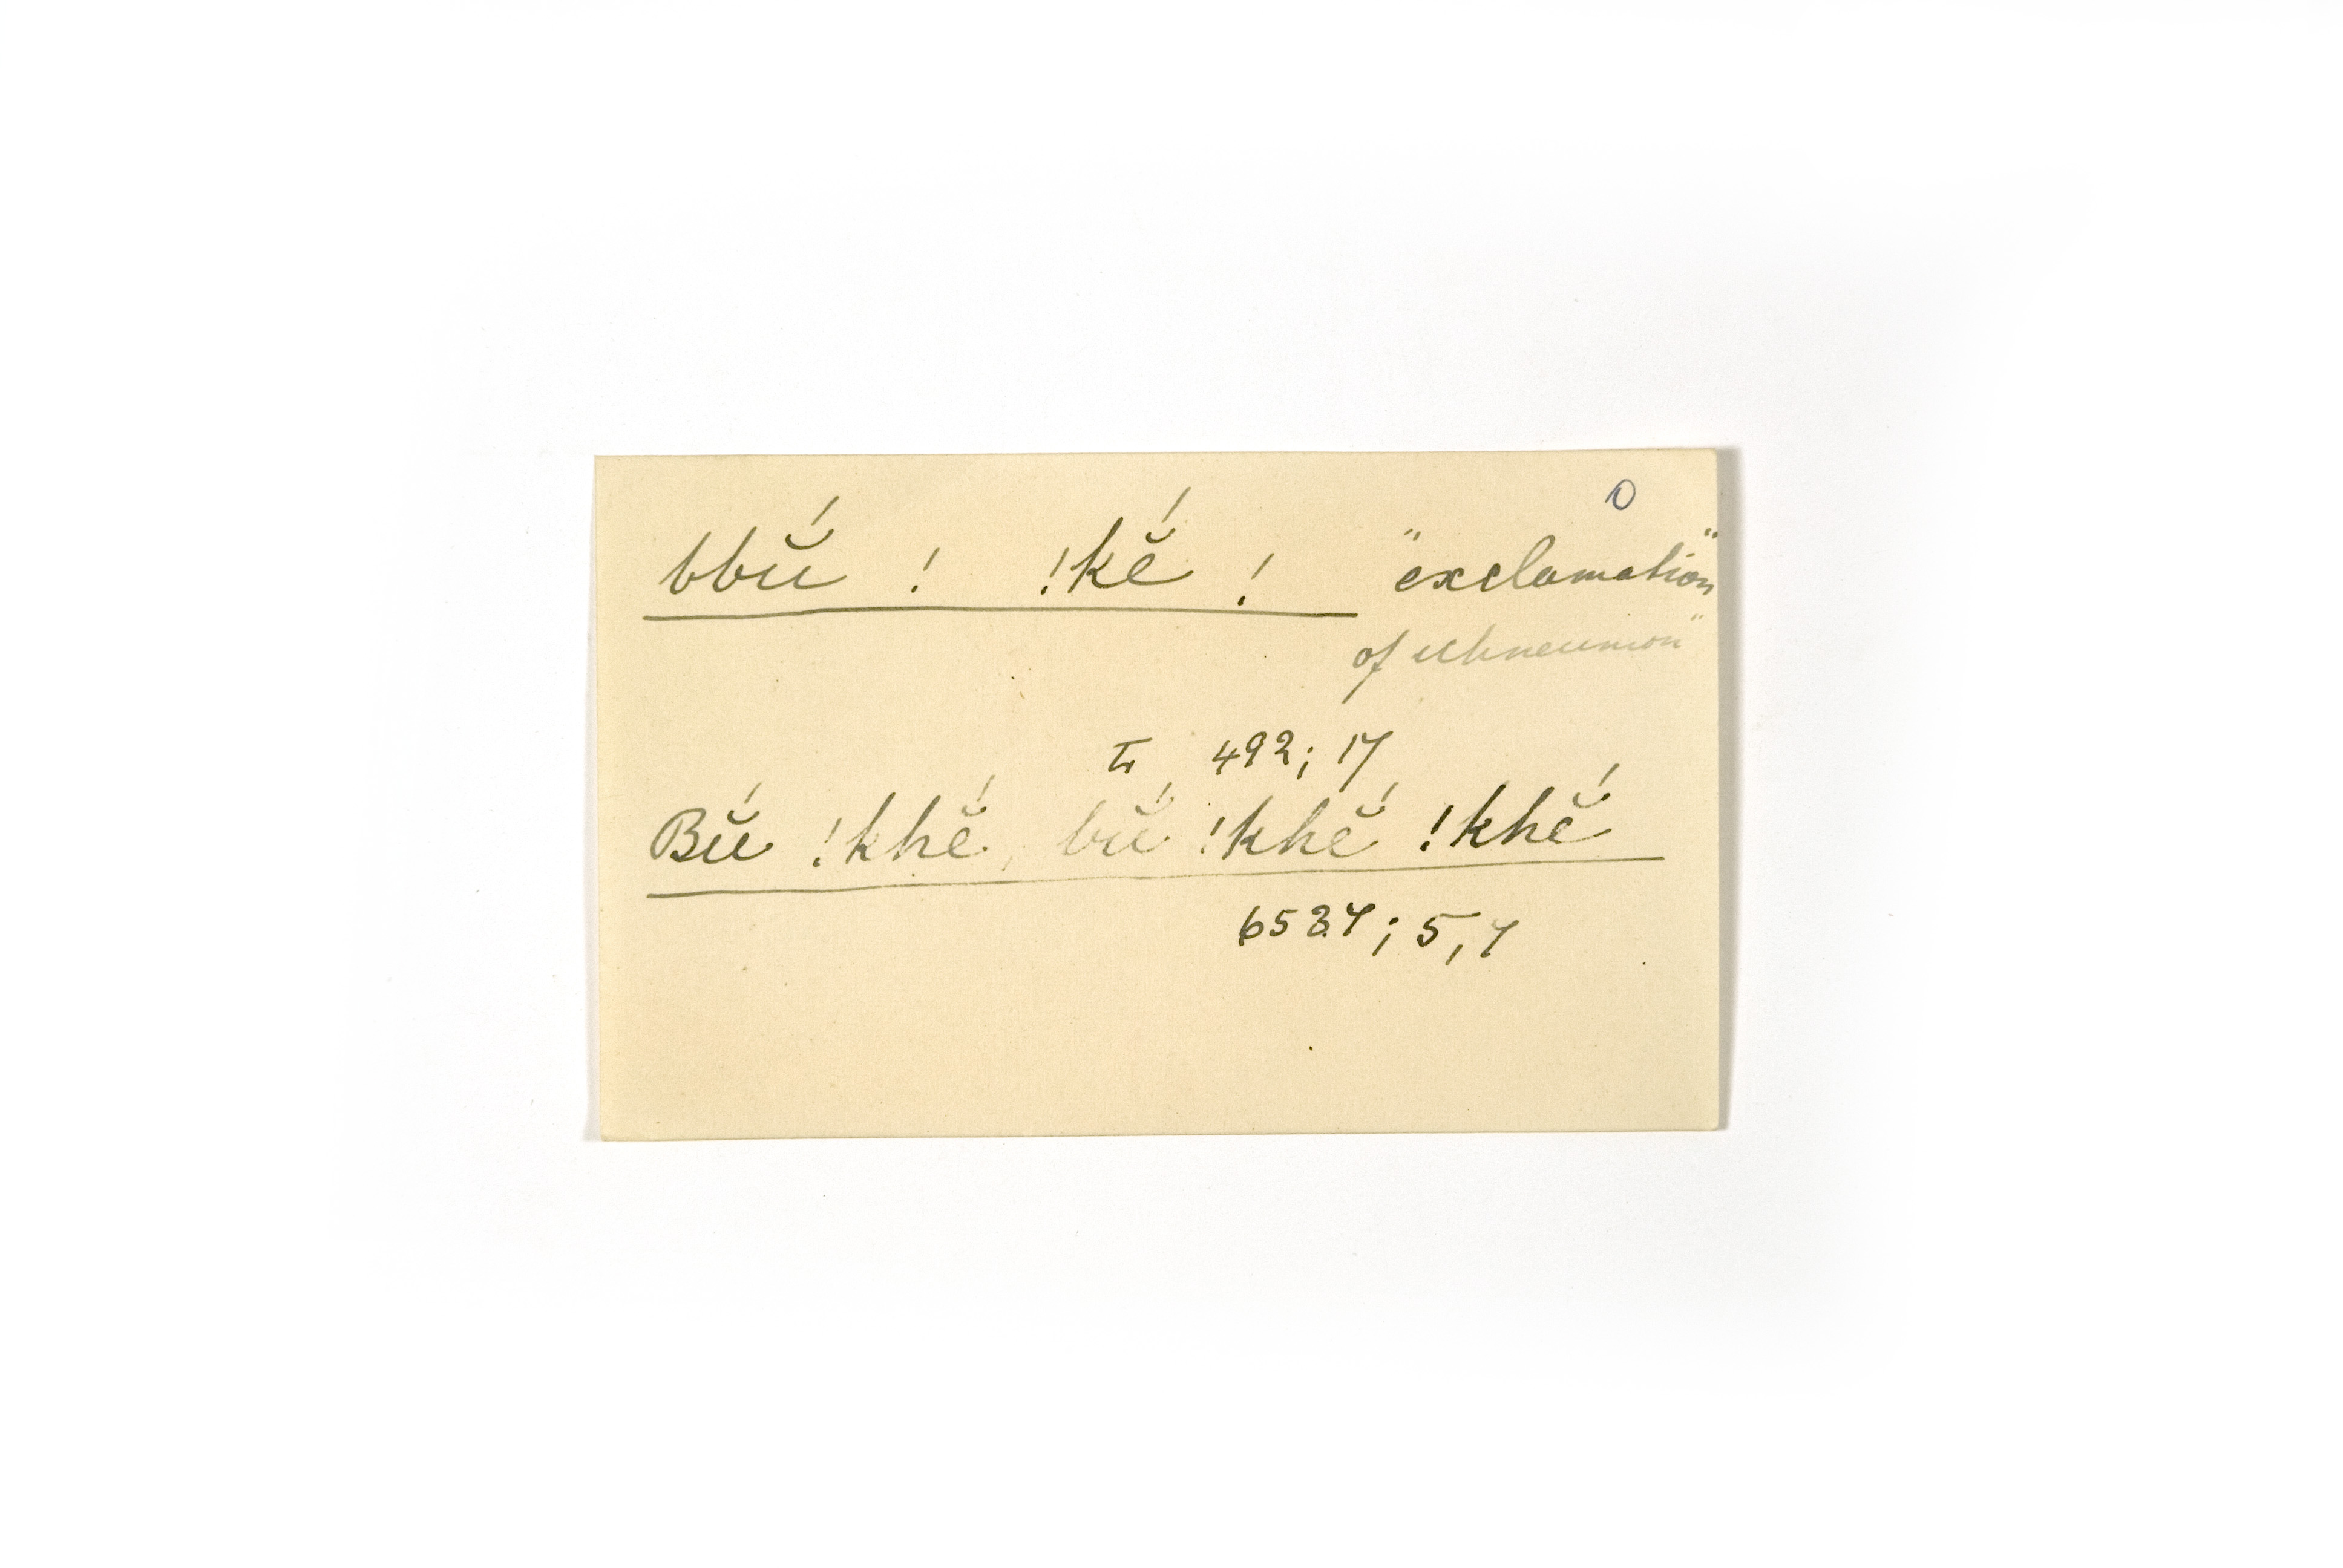 0
bbŭ́ ! !kĕ́ ! "exclamation"
of ichneumon"
492; 17
Bŭ́ !khĕ́, bŭ́ !khĕ́ !khĕ́
6537; 5, 7